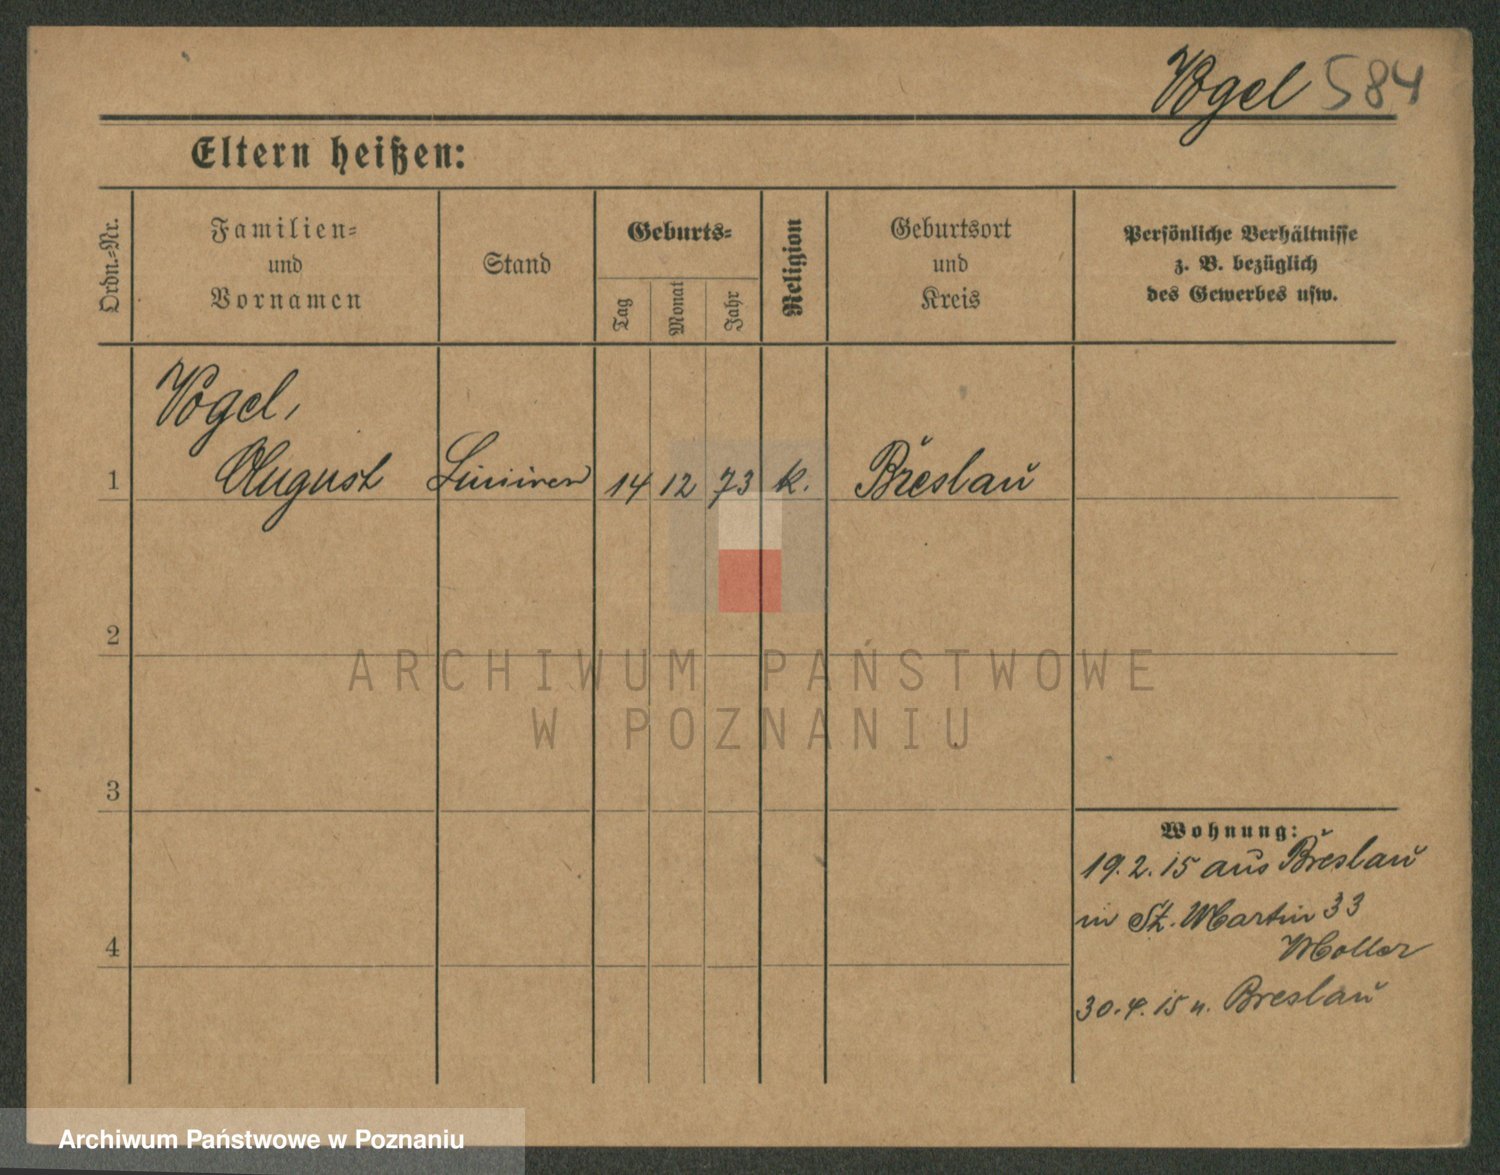 Vogel 584
Eltern heißen:
Ordn.-Nr.
Familien-
und
Vornamen
Stand
Geburts-
Tag
Monat
Jahr
Religion
Geburtsort
und
Kreis
Persönliche Verhältnisse
z. B. bezüglich
des Gewerbes usw.
Vogel,
1 August 14 12 73 k. Breslau
2
3
4
Wohnung:
19.2.15 aus Breslau
in St. Martin 33
30.4.15 n. Breslau
ARCHIWUM PAŃSTWOWE
W POZNANIU
Archiwum Państwowe w Poznaniu